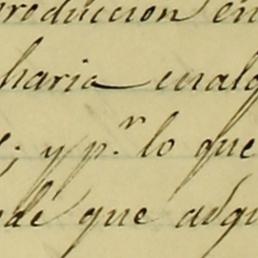 producción en
haria cualq
; y p.r lo que
ede que adqu